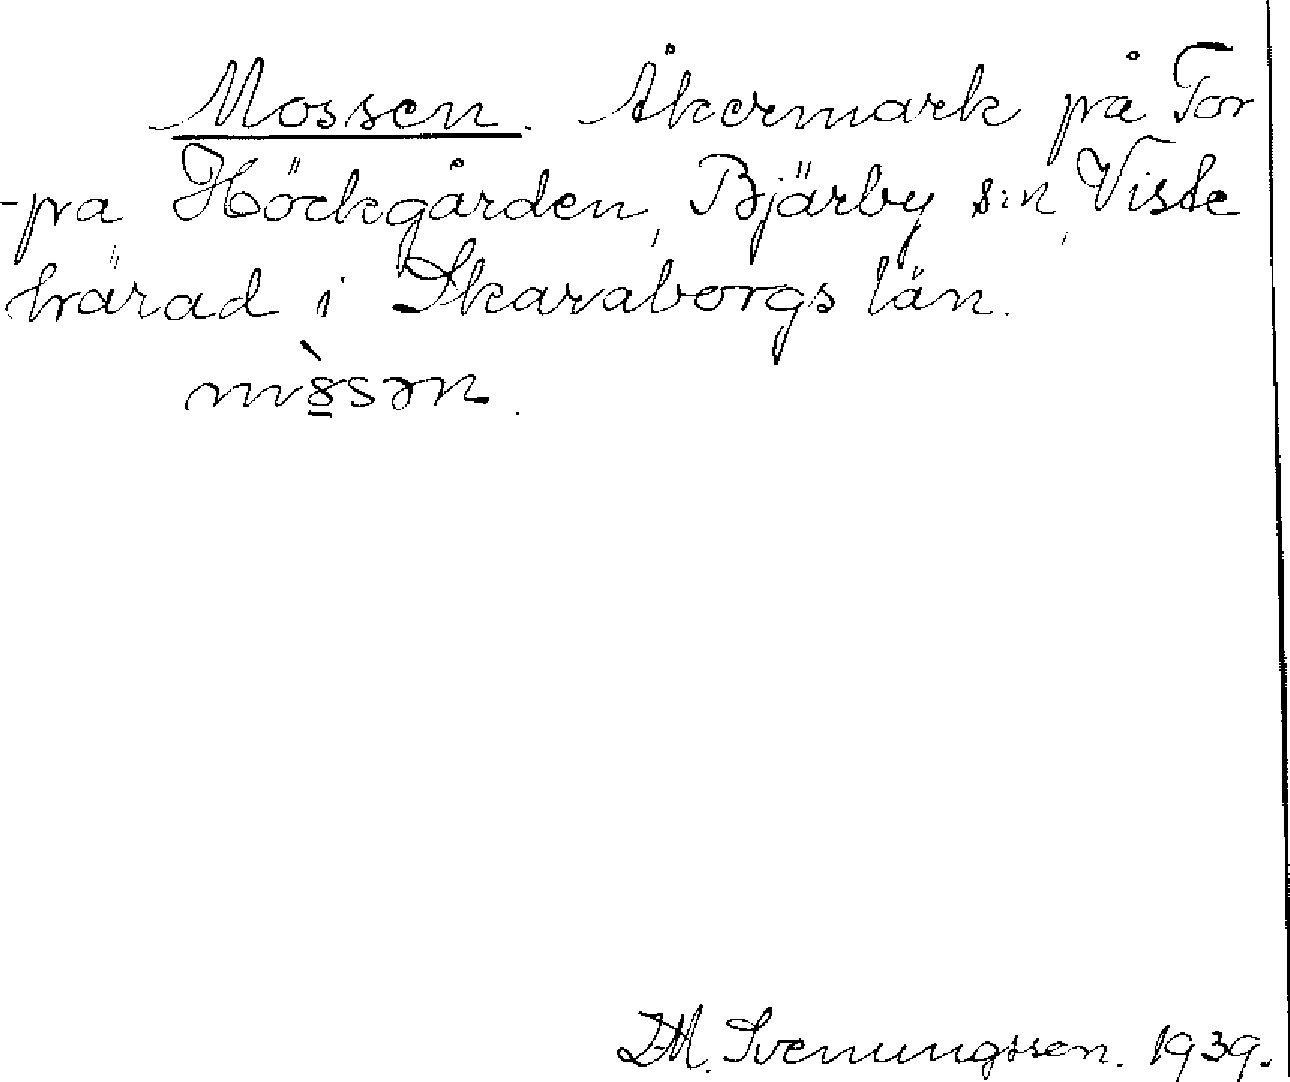 Mossen. Åkermark på Tor
-pa Höckgården, Bjärby s:n, Viste
härad i Skaraborgs län.
m&#x300;8sən.
D.M. Svenungsson. 1939.